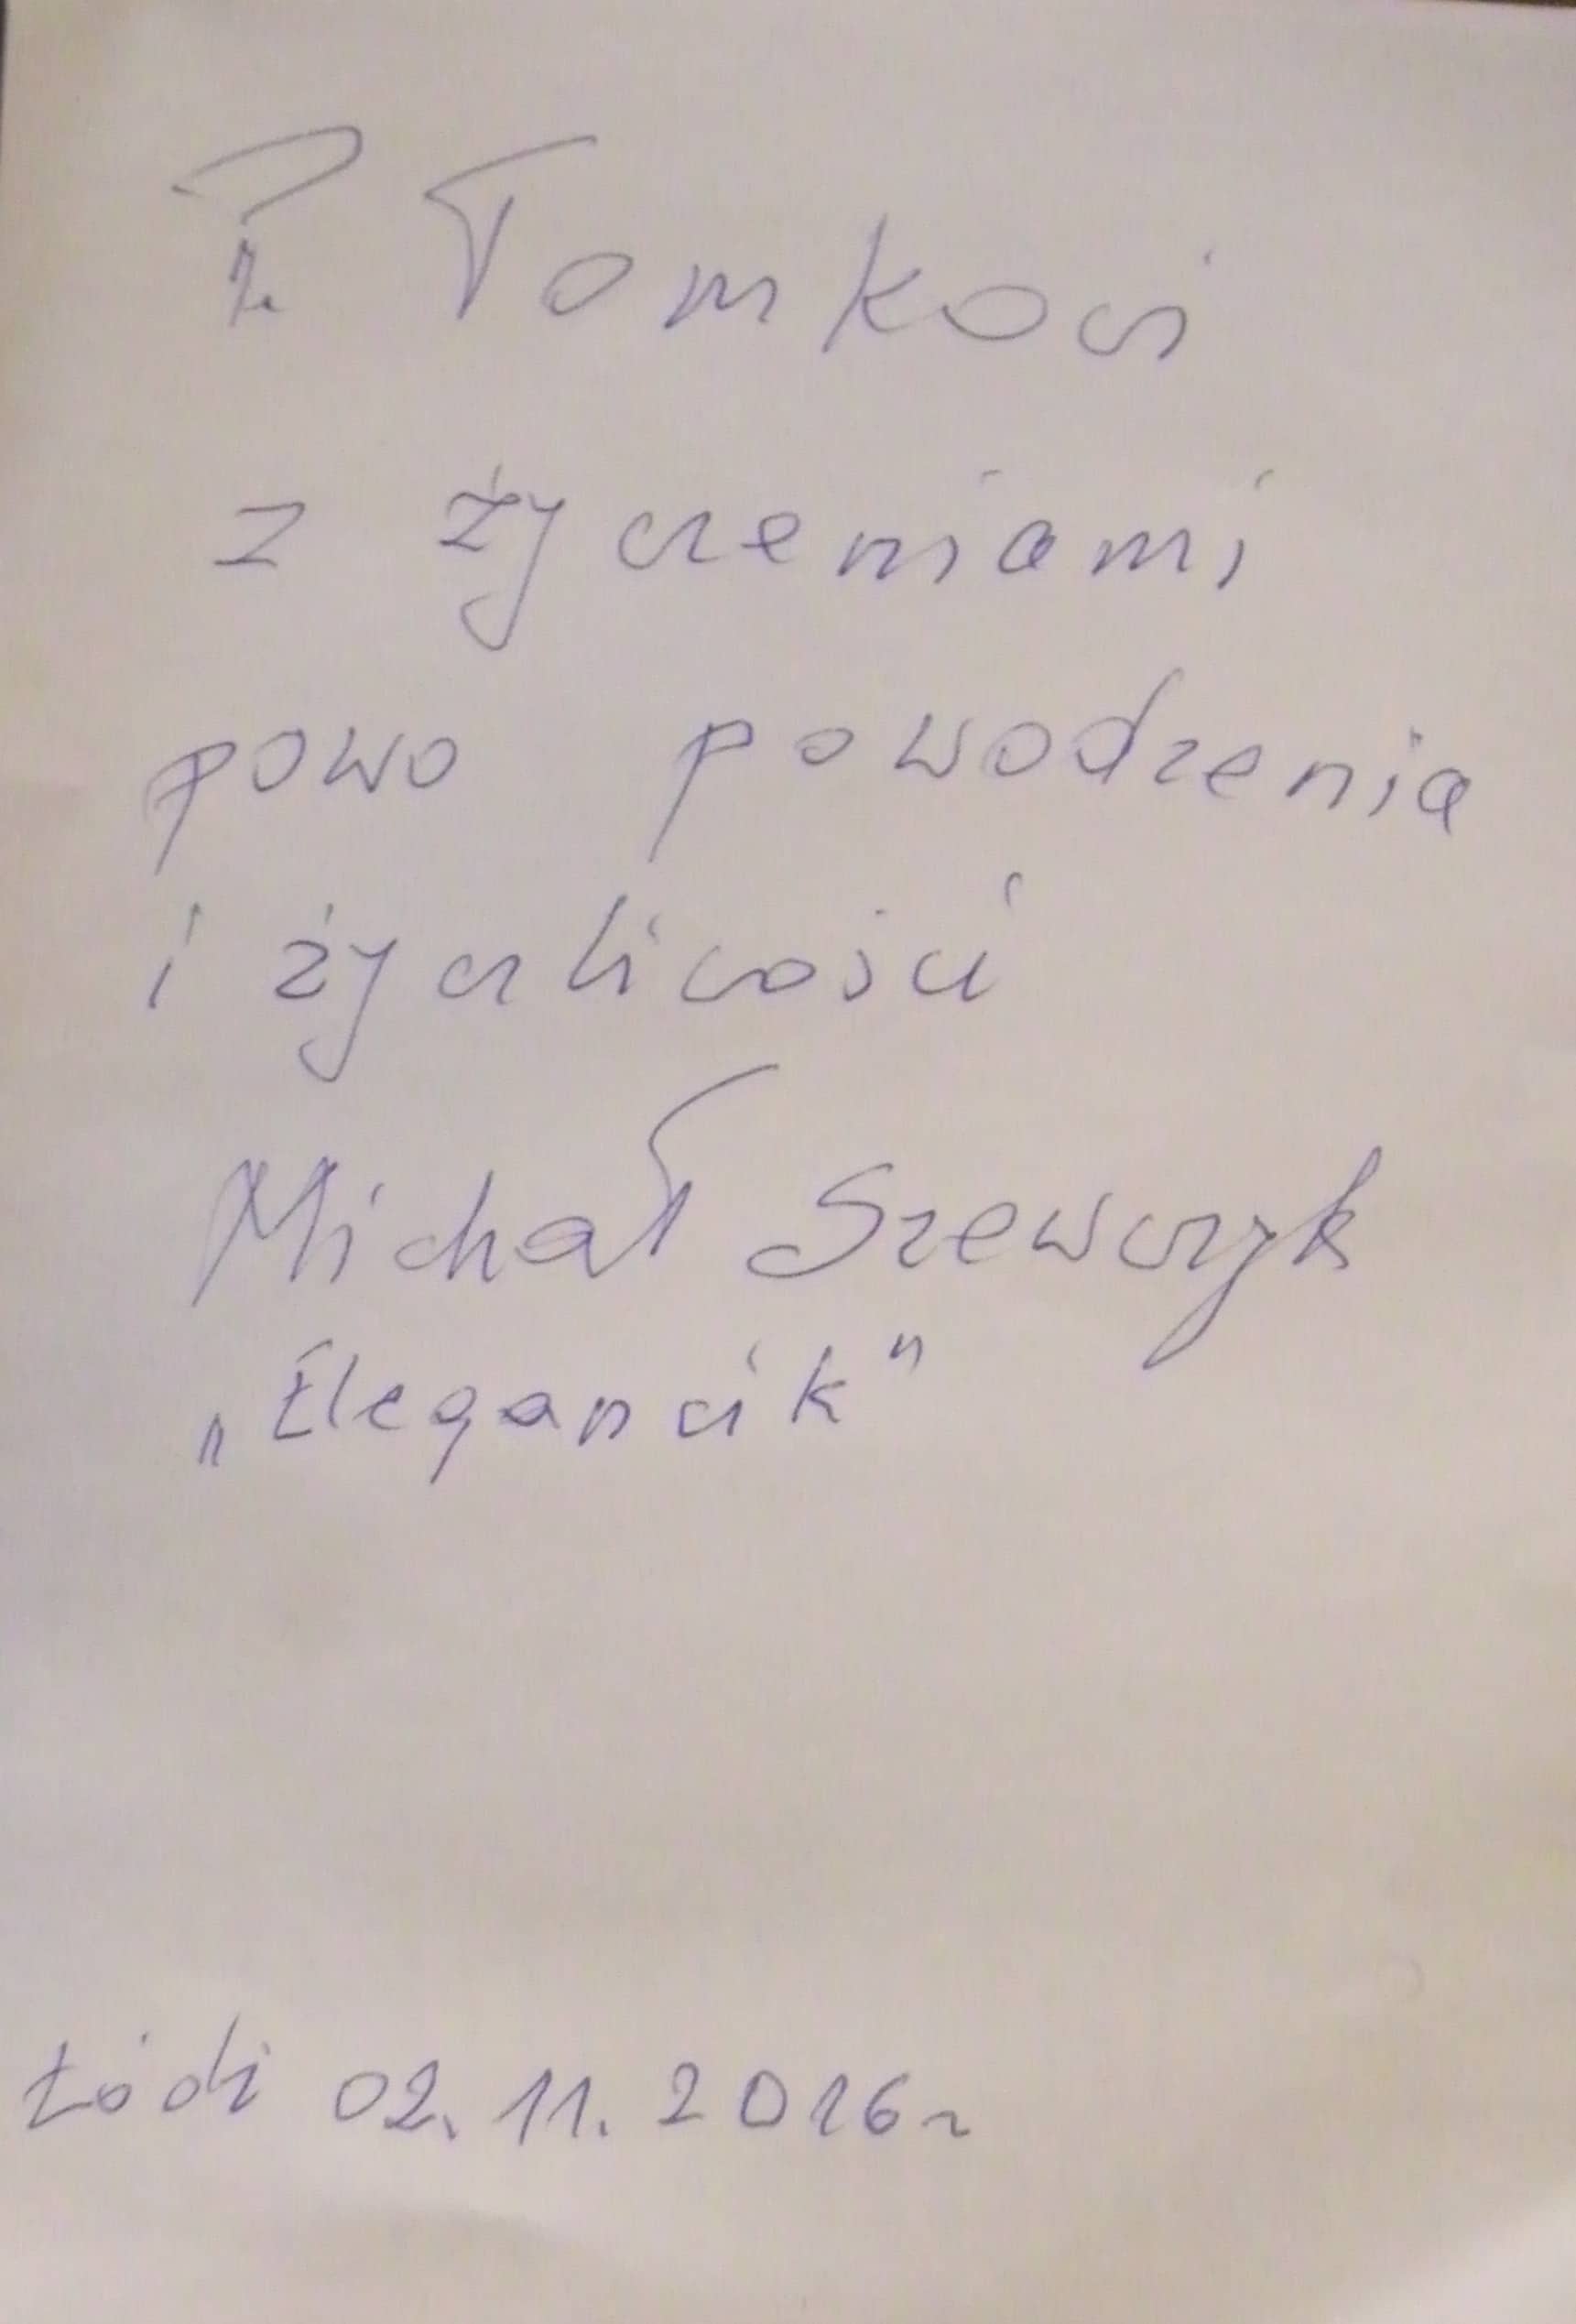 P. Tomkowi
z życzeniami
powo powodzenia
i życzliwości
Michał Szewczyk
„Elegancik”
Łódź 02. 11. 2016 r